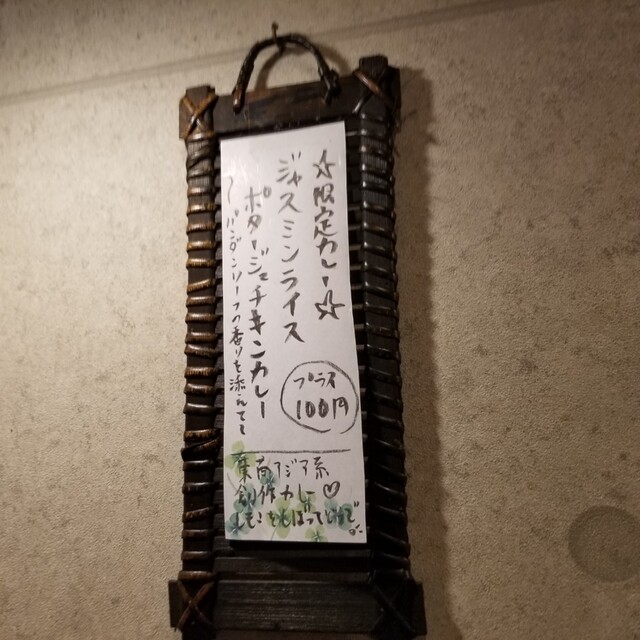 ☆限定カレー☆
ジャスミンライス
ポタージュチキンカレー
〜パンダンリーフの香りを添えて〜
プラス
100円
東南アジア系
創作カレー♡